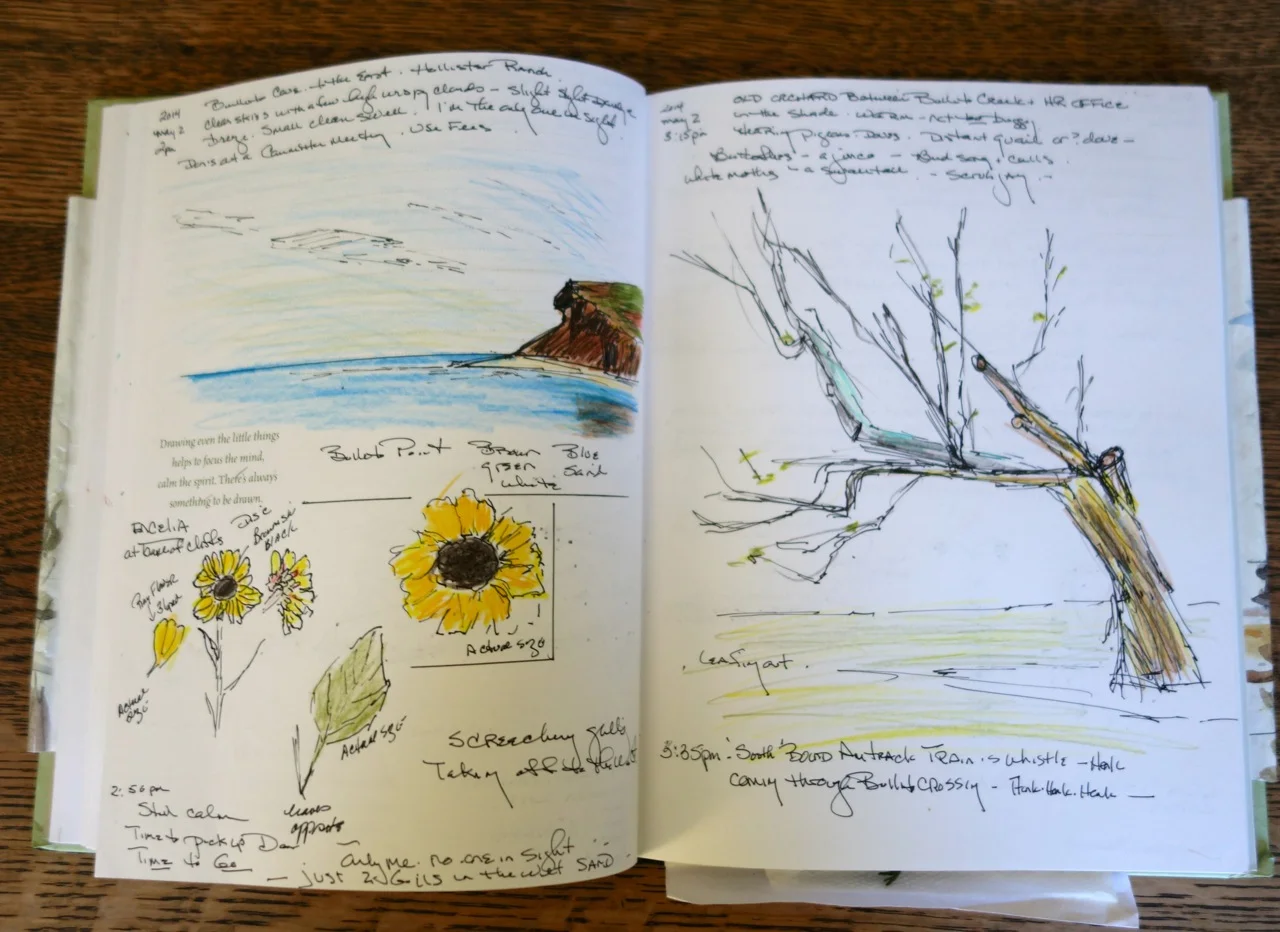 2014
May 2
2pm
Bullito Cove to the East. Hollister Ranch.
Clear skies with a few high wispy clouds – slight
breeze. Small clean swell. I'm the only one in sight.
at a Committee meeting. Use Fees
Drawing even the little things
helps to focus the mind,
calm the spirit. There's always
something to be drawn.
Bullito Point
Brown Blue
green Sand
white
ENCELIA
at base of cliffs
Disc
Brownish
BLACK
Ray Flower
Actual
size
Actual size
Actual size
leaves
opposite
Screeching gulls
Taking off to the
2:56 pm
Still calm
Time to pick up Dan
Time to Go
Only me. no one in sight
– just 2 in the wet SAND
2014
May 2
3:15pm
OLD ORCHARD Between Bullito Creek + HR OFFICE
in the shade. warm – not too buggy
Hearing Pigeons Doves. Distant quail or ? dove –
Butterflies – a junco – Bird song + calls
white moths – a swallowtail. – Scrub jay. –
. Leafing out .
3:35pm. 'South' BOUND AMTRACK Train is whistle – Honk
coming through Bullito CROSSING – Honk. Honk. Honk –